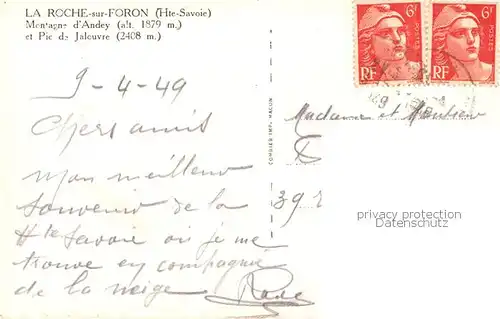 LA ROCHE-sur-FORON (Hte-Savoie)
Montagne d'Andey (alt. 1879 m.)
et Pic de Jalouvre (2408 m.)
6F 6F
POSTES
RF RF
9-4-49
Chers amis
Mon meilleur
souvenir de la
Hte Savoie où je me
trouve en compagnie
de la neige
COMBIER IMP. MACON
Madame et Monsieur
privacy protection
Datenschutz